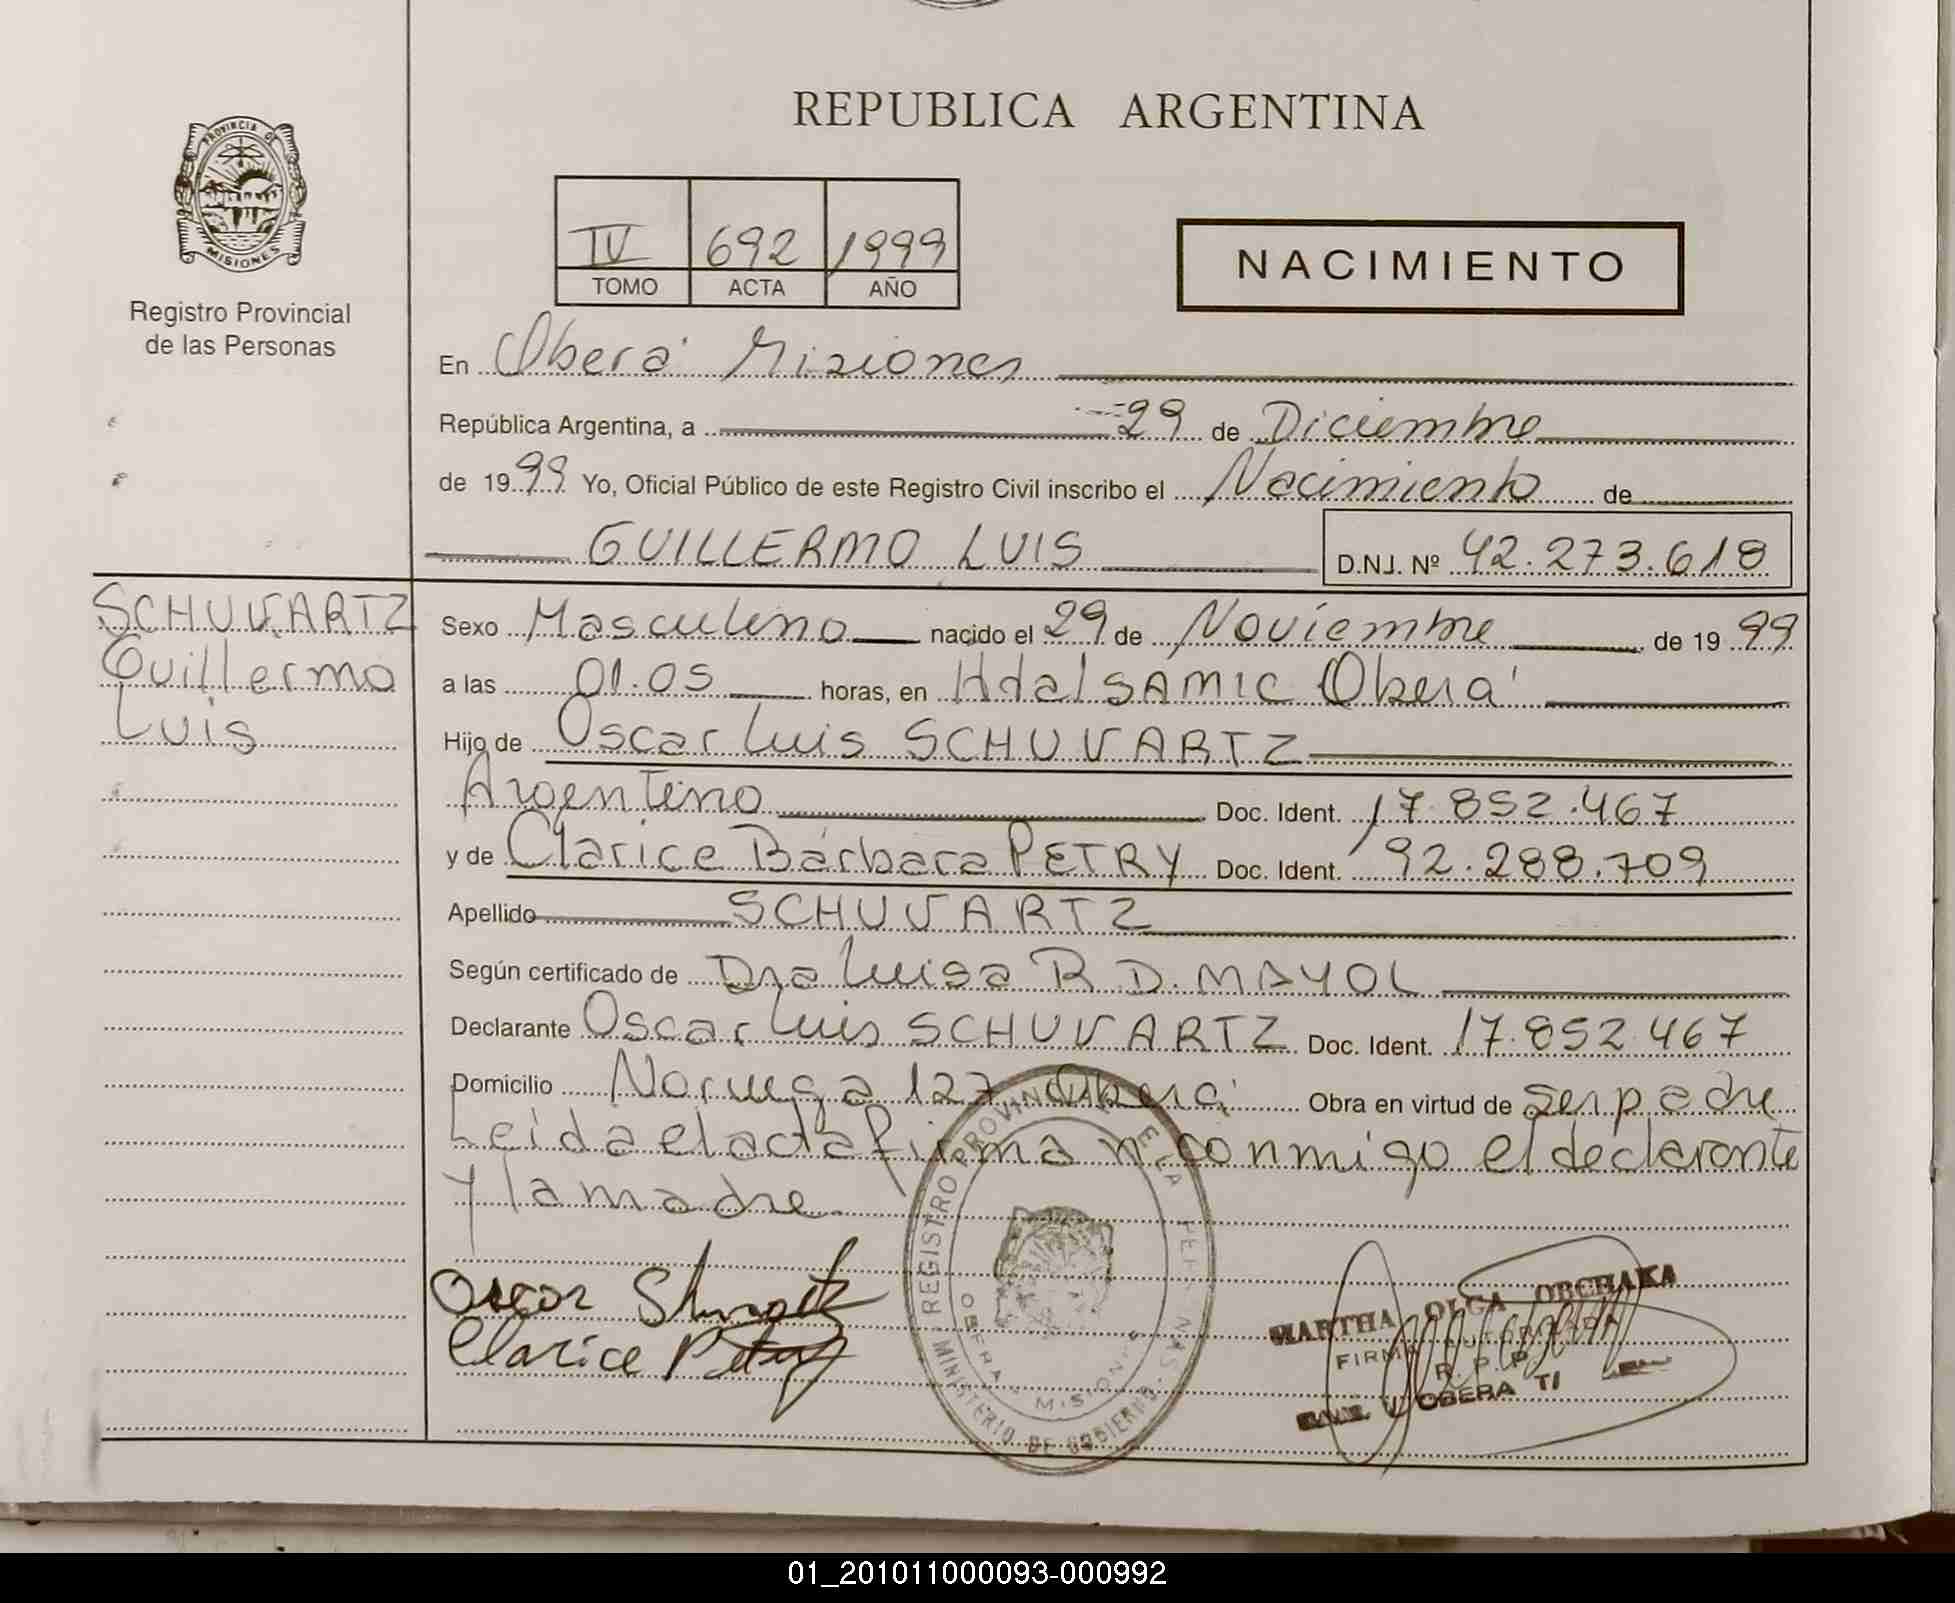 REPUBLICA ARGENTINA
PROVINCIA DE
MISIONES
Registro Provincial
de las Personas
IV 692 1999
TOMO ACTA AÑO
NACIMIENTO
En Oberá Misiones
República Argentina, a 29 de Diciembre
de 1999 Yo, Oficial Público de este Registro Civil inscribo el Nacimiento de
GUILLERMO LUIS D.N.I. Nº 42.273.618
SCHUVARTZ
Guillermo
Luis
Sexo Masculino nacido el 29 de Noviembre de 1999
a las 01.05 horas, en Hdal SAMIC Oberá
Hijo de Oscar Luis SCHUVARTZ
Argentino Doc. Ident. 17.852.467
y de Clarice Bárbara PETRY Doc. Ident. 92.288.709
Apellido SCHUVARTZ
Según certificado de Dra Luisa R D. MAYOL
Declarante Oscar Luis SCHUVARTZ Doc. Ident. 17.852.467
Domicilio Noruega 127 Oberá Obra en virtud de ser padre
Leida el acta firma n conmigo el declarante
y la madre.
Oscar
Clarice Petry
REGISTRO PROVINCIAL DE LAS PERSONAS
MINISTERIO DE GOBIERNO
OBERA - MISIONES
MARTHA OLGA ORCHAKA
FIRMA AUTORIZADA
R. P. P.
OBERA
01_201011000093-000992